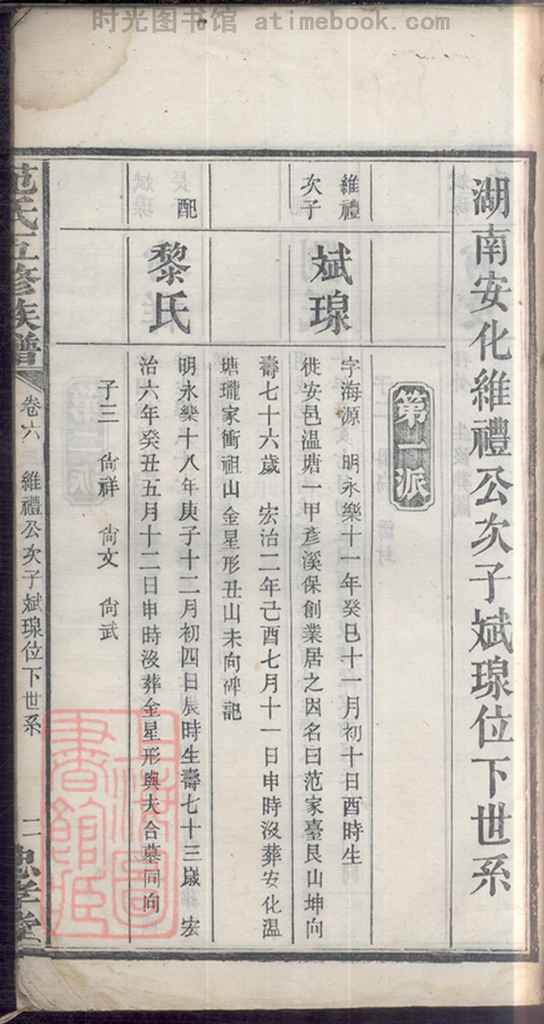 时光图书馆 atimebook.com
湖南安化維禮公次子斌㻛位下世系
第一派
維禮
次子
斌㻛
字海源 明永樂十一年癸巳十一月初十日酉時生
徙安邑温塘一甲彥溪保創業居之因名曰范家臺艮山坤向
壽七十六歲 宏治二年己酉七月十一日申時沒葬安化温
塘瓏家衝祖山金星形丑山未向碑記
配
黎氏
明永樂十八年庚子十二月初四日辰時生壽七十三歲 宏
治六年癸丑五月十二日申時沒葬金星形與大合墓同向
子三 尙祥 尙文 尙武
范氏五修族譜
卷六 維禮公次子斌㻛位下世系
二
忠孝堂
上海圖
書館